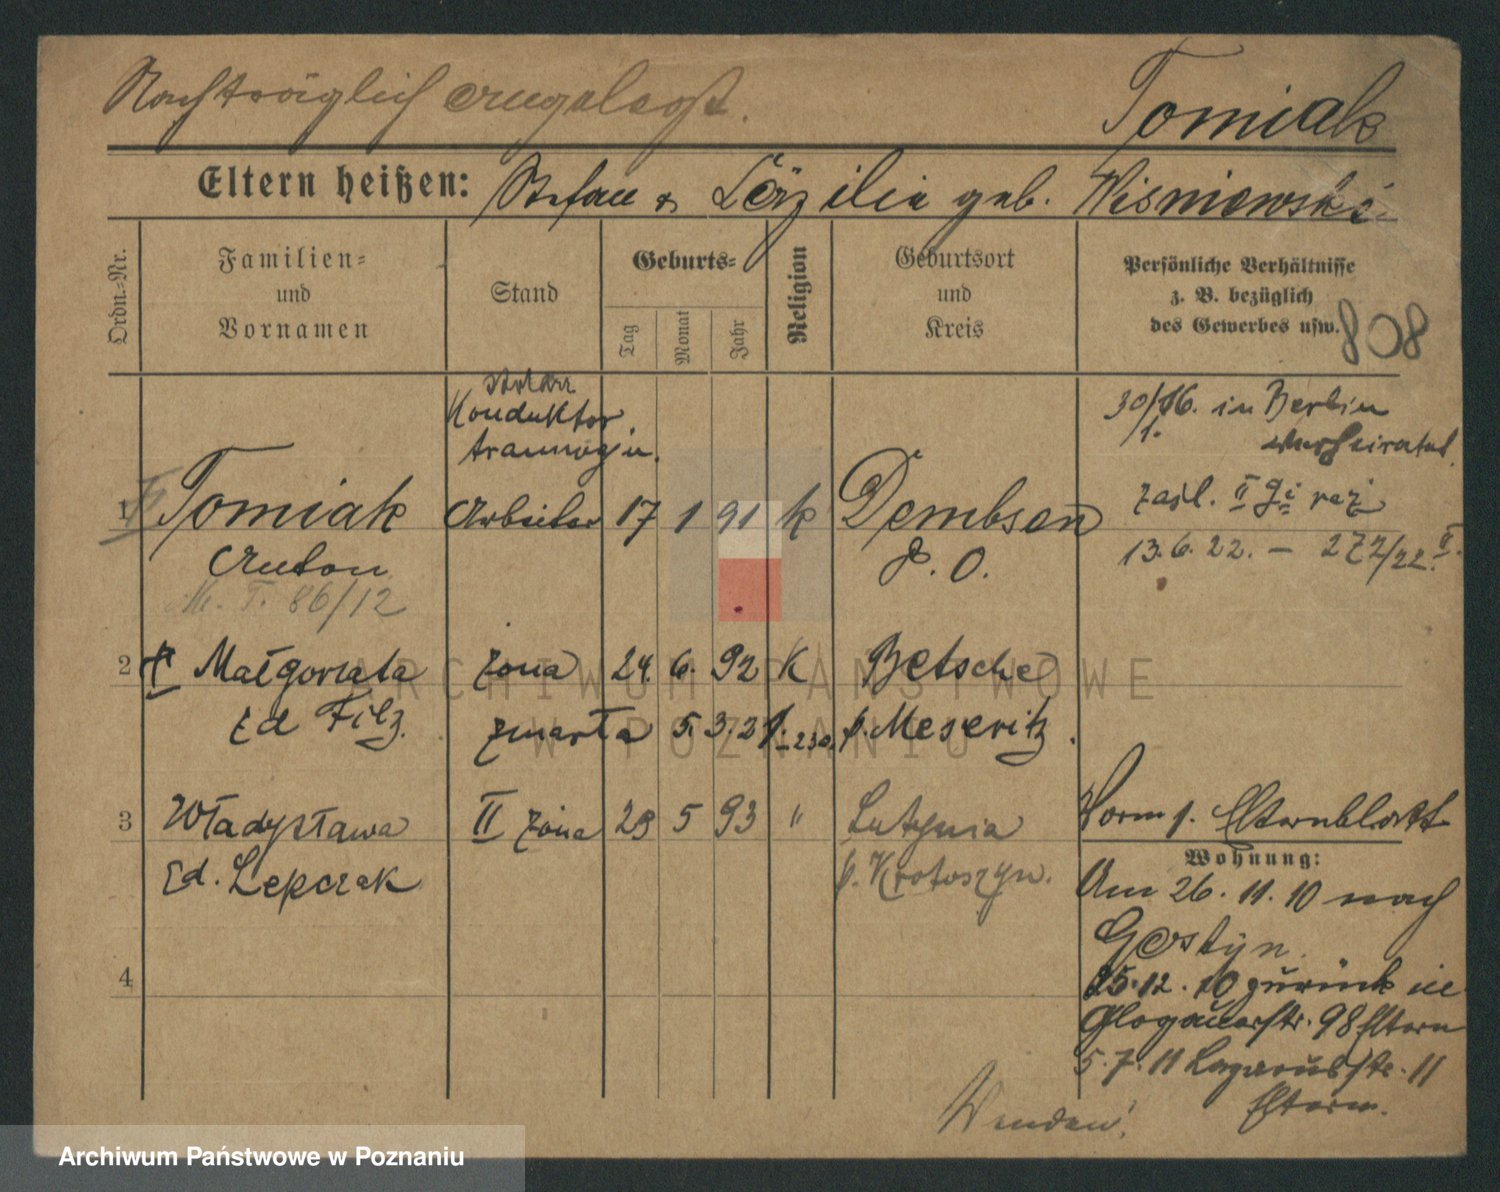 Nachträglich angelegt.
Tomiak
Eltern heißen: Stefan & Cäzilia geb. Wisniewski
Ordn.-Nr.
Familien-
und
Vornamen
Stand
Geburts-
Tag
Monat
Jahr
Religion
Geburtsort
und
Kreis
Persönliche Verhältnisse
z. B. bezüglich
des Gewerbes usw.
808
Konduktor
tramwaju.
30/1. 16. in Berlin
verheiratet.
1 Tomiak Arbeiter 17 1 91 k Dembsen
Anton P. O.
zaśl. II
13.6.22. – 272/22 II.
M. T. 86/12
2 Małgorzata żona 24. 6. 92 K Betsche
zd Filz. zmarła 5. 3. 21. -230. p. Meseritz.
3 Władysława II żona 29 5 93 " Lutynia
zd. Lepczak p. Krotoszyn.
Vorm s. Elternblatt
Wohnung:
Am 26. 11. 10 nach
Gostyn.
25. 12. 10 zurück in
Glogauerstr. 98 Eltern
5. 7. 11 Lazarusstr. 11
Eltern.
4
Wenden!
ARCHIWUM PAŃSTWOWE
W POZNANIU
Archiwum Państwowe w Poznaniu